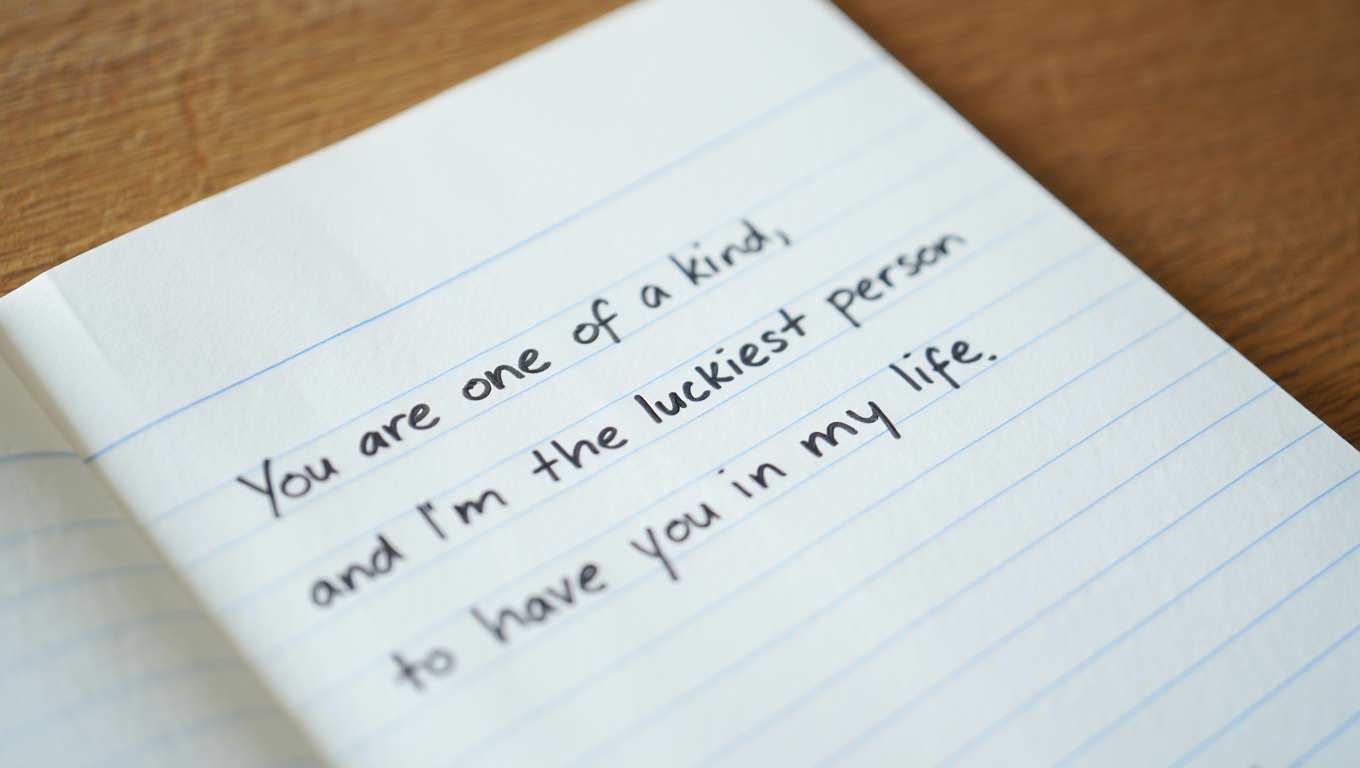 You are one of a kind,
and I'm the luckiest person
to have you in my life.